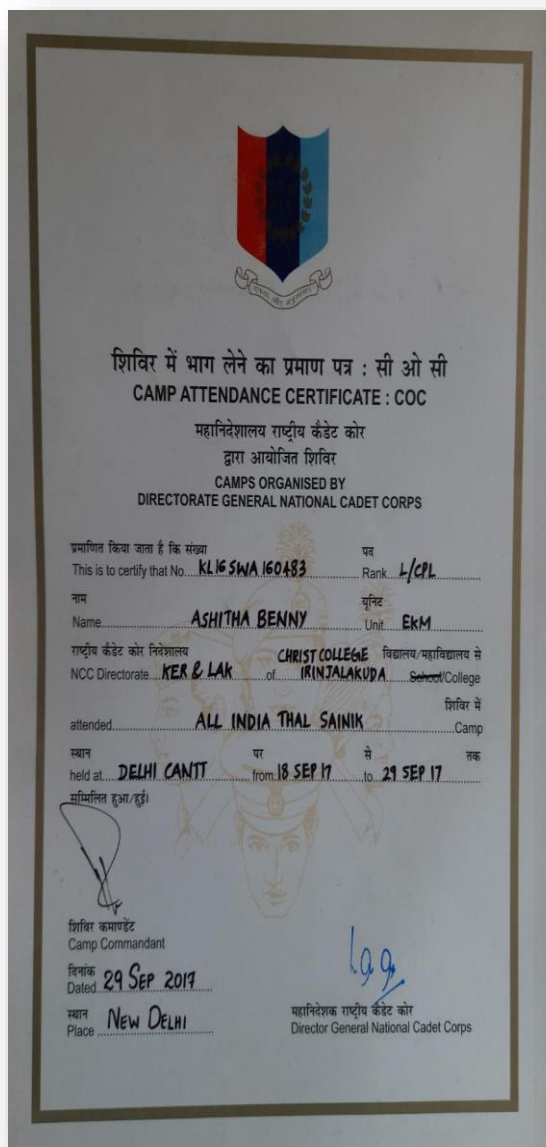 एकता और अनुशासन
शिविर में भाग लेने का प्रमाण पत्र : सी ओ सी
CAMP ATTENDANCE CERTIFICATE : COC
महानिदेशालय राष्ट्रीय कैडेट कोर
द्वारा आयोजित शिविर
CAMPS ORGANISED BY
DIRECTORATE GENERAL NATIONAL CADET CORPS
प्रमाणित किया जाता है कि संख्या पद
This is to certify that No. KL16 SWA 160483 Rank L/CPL
नाम यूनिट
Name ASHITHA BENNY Unit EKM
राष्ट्रीय कैडेट कोर निदेशालय CHRIST COLLEGE विद्यालय/महाविद्यालय से
NCC Directorate KER & LAK of IRINJALAKUDA School/College
शिविर में
attended ALL INDIA THAL SAINIK Camp
स्थान पर से तक
held at DELHI CANTT from 18 SEP 17 to 29 SEP 17
सम्मिलित हुआ/हुई।
शिविर कमाण्डेंट
Camp Commandant
दिनांक
Dated 29 SEP 2017
स्थान
Place NEW DELHI
महानिदेशक राष्ट्रीय कैडेट कोर
Director General National Cadet Corps